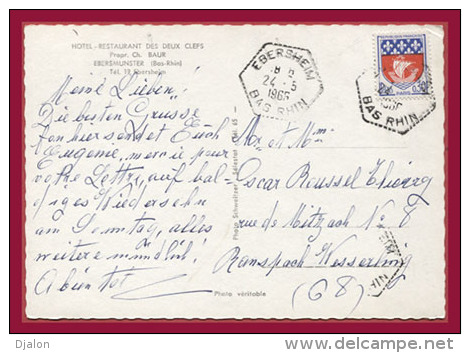 HOTEL - RESTAURANT DES DEUX CLEFS
Propr. Ch. BAUR
EBERSMUNSTER (Bas-Rhin)
Tél. 12 Ebersheim
Meine Lieben!
Die besten Grüsse
von hier sendet Euch
Eugenie, merci pour
votre Lettre, auf bal-
diges Wiedersehn
am Sonntag, alles
weitere mündlich!
A bientot
Photo Schweitzer - Sélestat
Photo véritable
EBERSHEIM
24 - 5
1966
BAS RHIN
PARIS
BAS RHIN
Mr et Mme
Oscar Roussel Thierg
rue de Mitzach No 8
Ranspach Wesserling
(68)
Djalon
delcampe.net